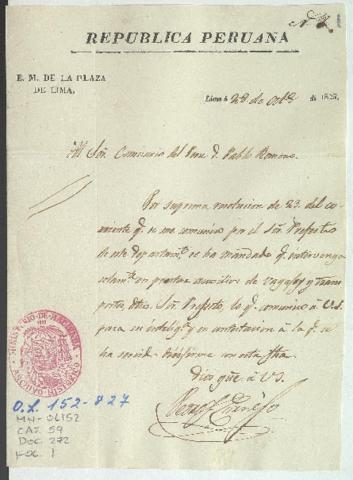 Nº 2.
REPUBLICA PERUANA
E. M. DE LA PLAZA
DE LIMA.
Lima á 28 de octe de 182
Al Sor. Comisario del Peru D. Pablo Romero
Por suprema resolucion de 23. del co-
rriente q. se me comunica por el Sor. Prefecto
de este departamto. se ha mandado q. intervenga
solamte. en prestar auxilios de vagages y trans-
portes dho. Sor. Prefecto, lo q. comunico á V.S.
para su intelig. y en contestacion á la q. se
ha servido dirijirme con esta fha.
Dios gue á V.S.
MINISTERIO DE HACIENDA
ARCHIVO HISTORICO
O.L. 152-827
MH-OL152
CAJ. 59
DOC. 272
FOL. 1